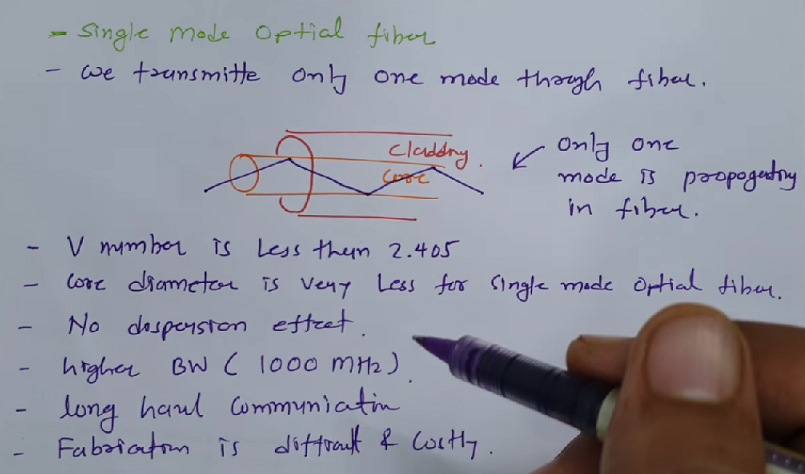 - Single mode Optial fiber
- we transmitte only one mode though fiber.
Cladding.
Core
Only one
mode is propogating
in fiber.
- V number is Less then 2.405
- Core diameter is very Less for single mode Optial fiber.
- No despersion effect.
- higher BW ( 1000 MHz)
- long haul Communicatin
- Fabrication is difficult & Costly.